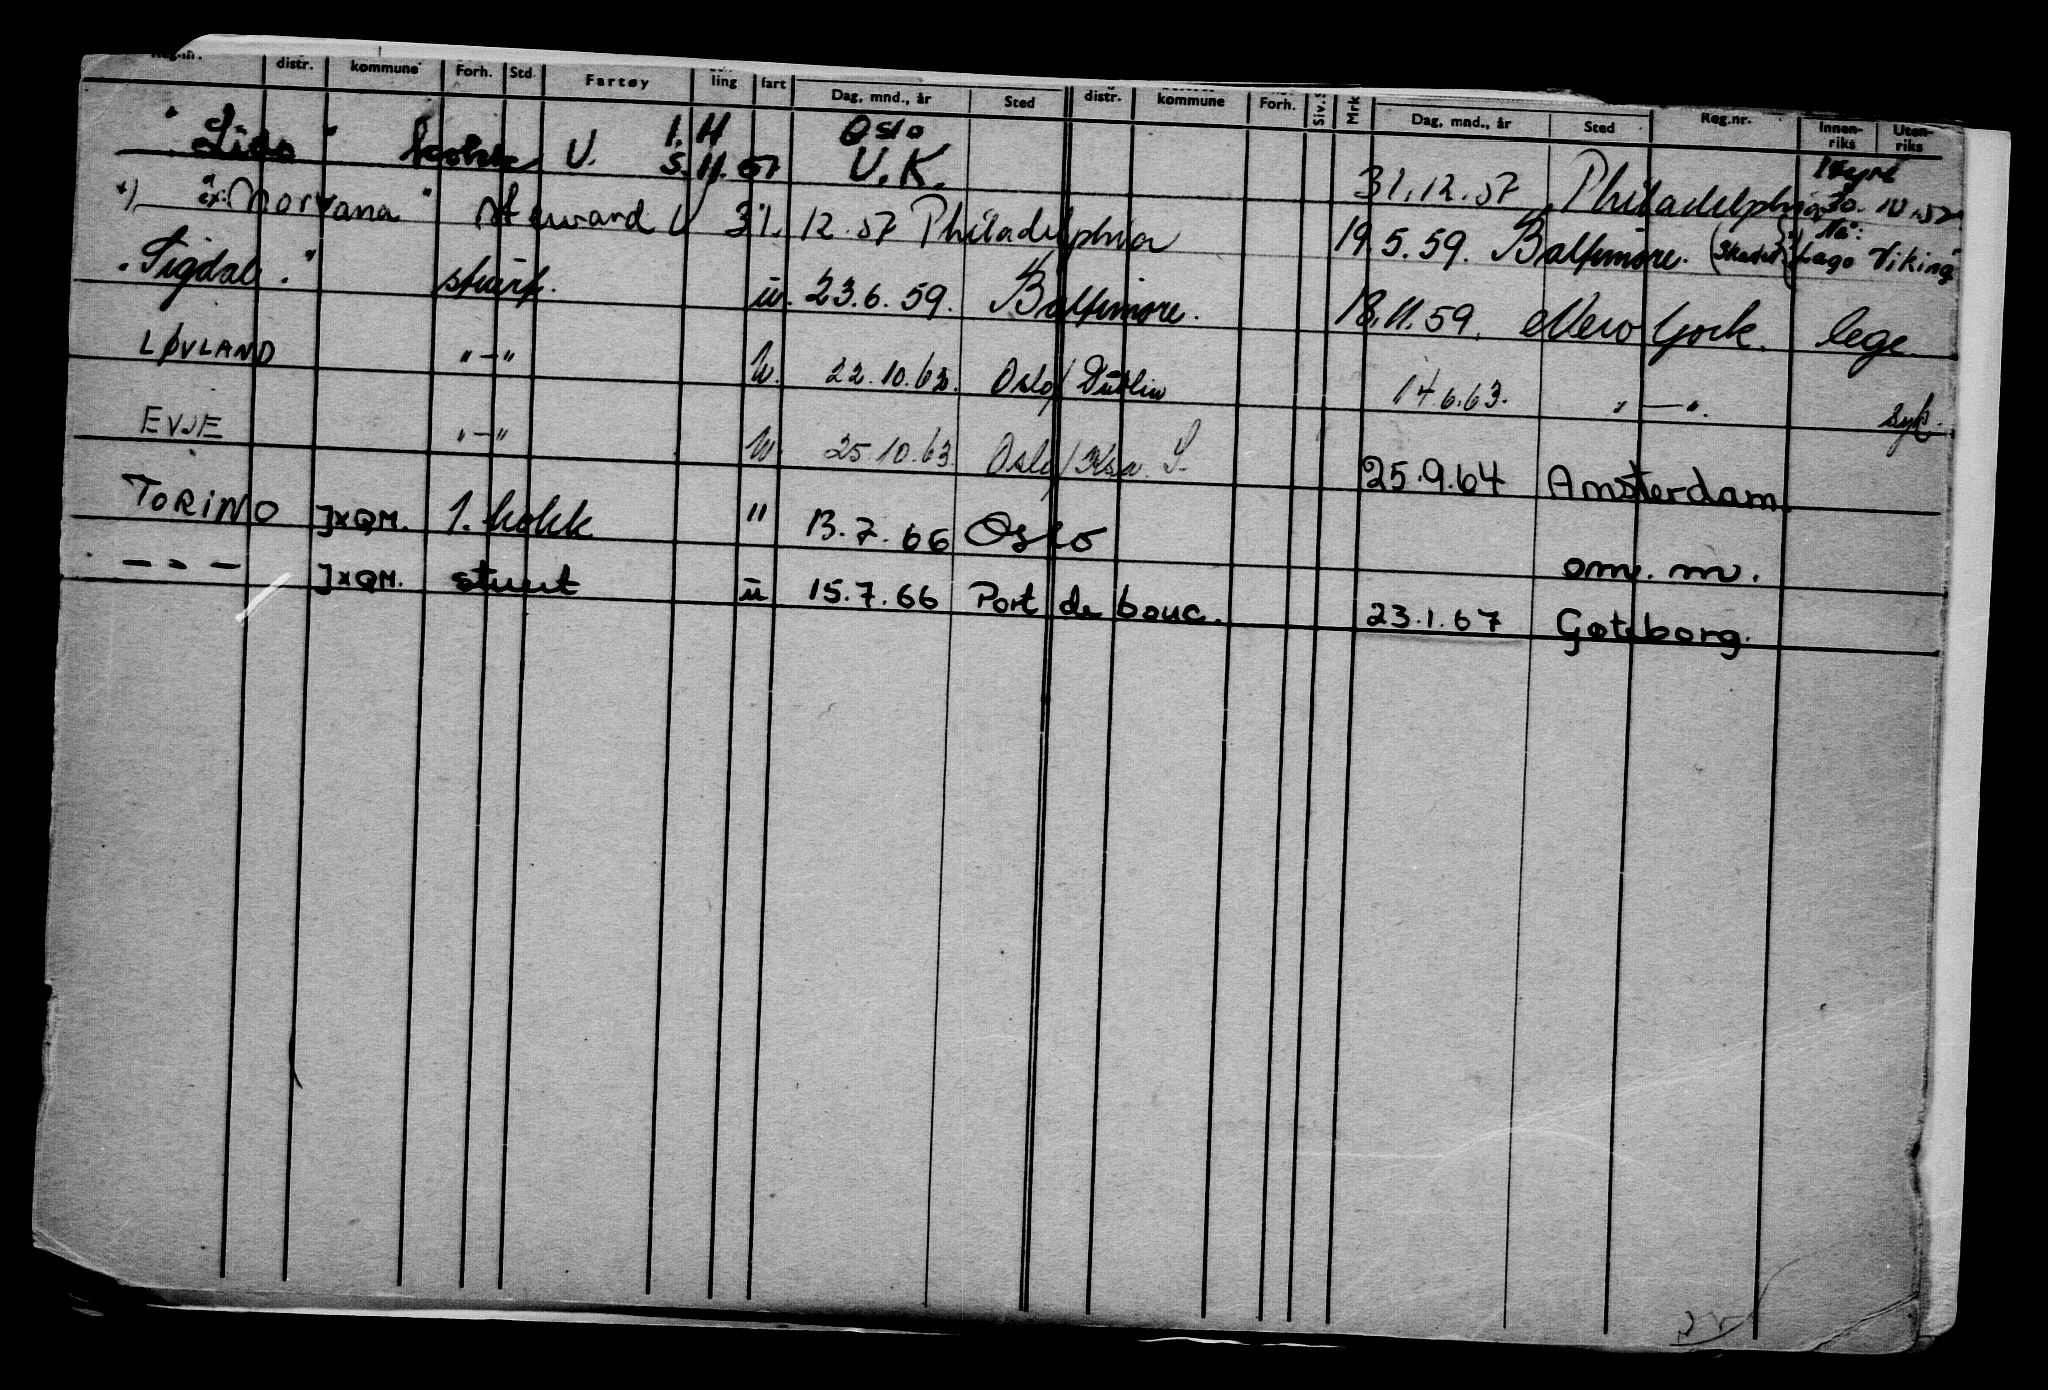 distr. kommune Forh. Std. Fartøy ling fart Dag, mnd., år Sted distr. kommune Forh. Siv. Mrk Dag, mnd., år Sted Reg.nr. Innen-riks Uten-riks
1.11 Oslo
"Lido" kokk U. 5.11.57 U.K. 31.12.57 Philadelphia 30.10.57
x) ex: "Norvana" Steward U 31.12.57 Philadelphia 19.5.59. Baltimore. Nå: Lago Viking"
"Sigdal." stuert. u. 23.6.59. Baltimore. 18.11.59. New York. lege.
LØVLAND "—" u. 22.10.62. Oslo/Dublin 14.6.63. "—". syk.
EVJE "—" u. 25.10.63. Oslo/Kra. S. 25.9.64 Amsterdam.
TORINO JXQM. 1. kokk " 13.7.66 Oslo om. m.
— " — JXQM. stuert u 15.7.66 Port de bouc. 23.1.67 Gøteborg.